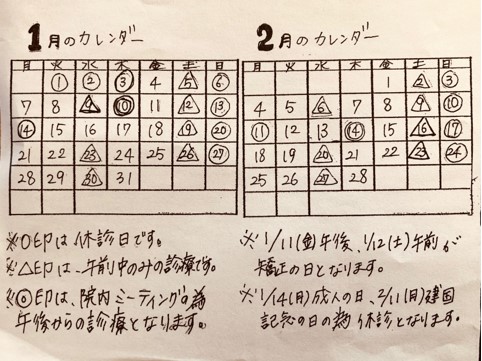 1月のカレンダー
月 火 水 木 金 土 日
1 2 3 4 5 6
7 8 9 10 11 12 13
14 15 16 17 18 19 20
21 22 23 24 25 26 27
28 29 30 31
2月のカレンダー
月 火 水 木 金 土 日
1 2 3
4 5 6 7 8 9 10
11 12 13 14 15 16 17
18 19 20 21 22 23 24
25 26 27 28
※○印は休診日です。
※△印は、午前中のみの診療です。
※◎印は、院内ミーティングの為
午後からの診療となります。
※1/11(金)午後、1/12(土)午前が
矯正の日となります。
※1/14(月)成人の日、2/11(月)建国
記念の日の為 休診となります。